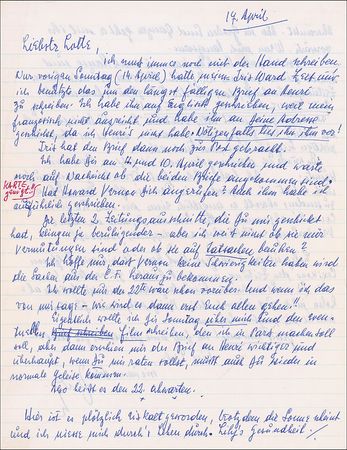 19. April
Liebste Lotte,
ich muss immer noch mit der Hand schreiben.
Nur vorigen Sonntag (14. April) hatte Iris Ward Zeit und
ich benützte das um den längst fälligen Brief an
zu schreiben. Ich habe ihm auf Englisch geschrieben, weil mein
französisch nicht ausreicht und habe ihn an Deine Adresse
geschickt, da ich Henri's nicht habe. Nötigenfalls lies ihn ihm vor!
Iris hat den Brief dann noch zur Post gebracht.
Ich habe Dir am 4. und 10. April geschrieben und warte
noch auf Nachricht ob die beiden Briefe angekommen sind.
KARTE
genügt
Hat Howard Vernon Dich angerufen? Auch ihm habe ich
ausführlich geschrieben.
Die letzten 2 Zeitungsausschnitte, die Du mir geschickt
hast, klingen ja beruhigender - aber ich weiß nicht ob sie nur
Vermutungen sind oder ob sie auf Tatsachen beruhen?
Ich hoffe nur, dass Vernon keine Schwierigkeiten haben wird
die Sachen aus der C.F. heraus zu bekommen.
Ich wollte nur der 22te wäre schon vorüber. Und wenn ich das
von mir sage - wie wird es dann erst Euch allen gehen!!
Eigentlich wollte ich Dir Sonntag über mich und den
Film schreiben, den ich in Paris machen soll
und
überhaupt, wenn Du mir raten sollst, müsst auch Ihr Frieden in
normale Geleise kommen.
Also heißt es den 22. erwarten.
Hier ist es plötzlich eiskalt geworden, trotzdem die Sonne scheint
und ich niesse mich durch's Leben durch. Gesundheit!